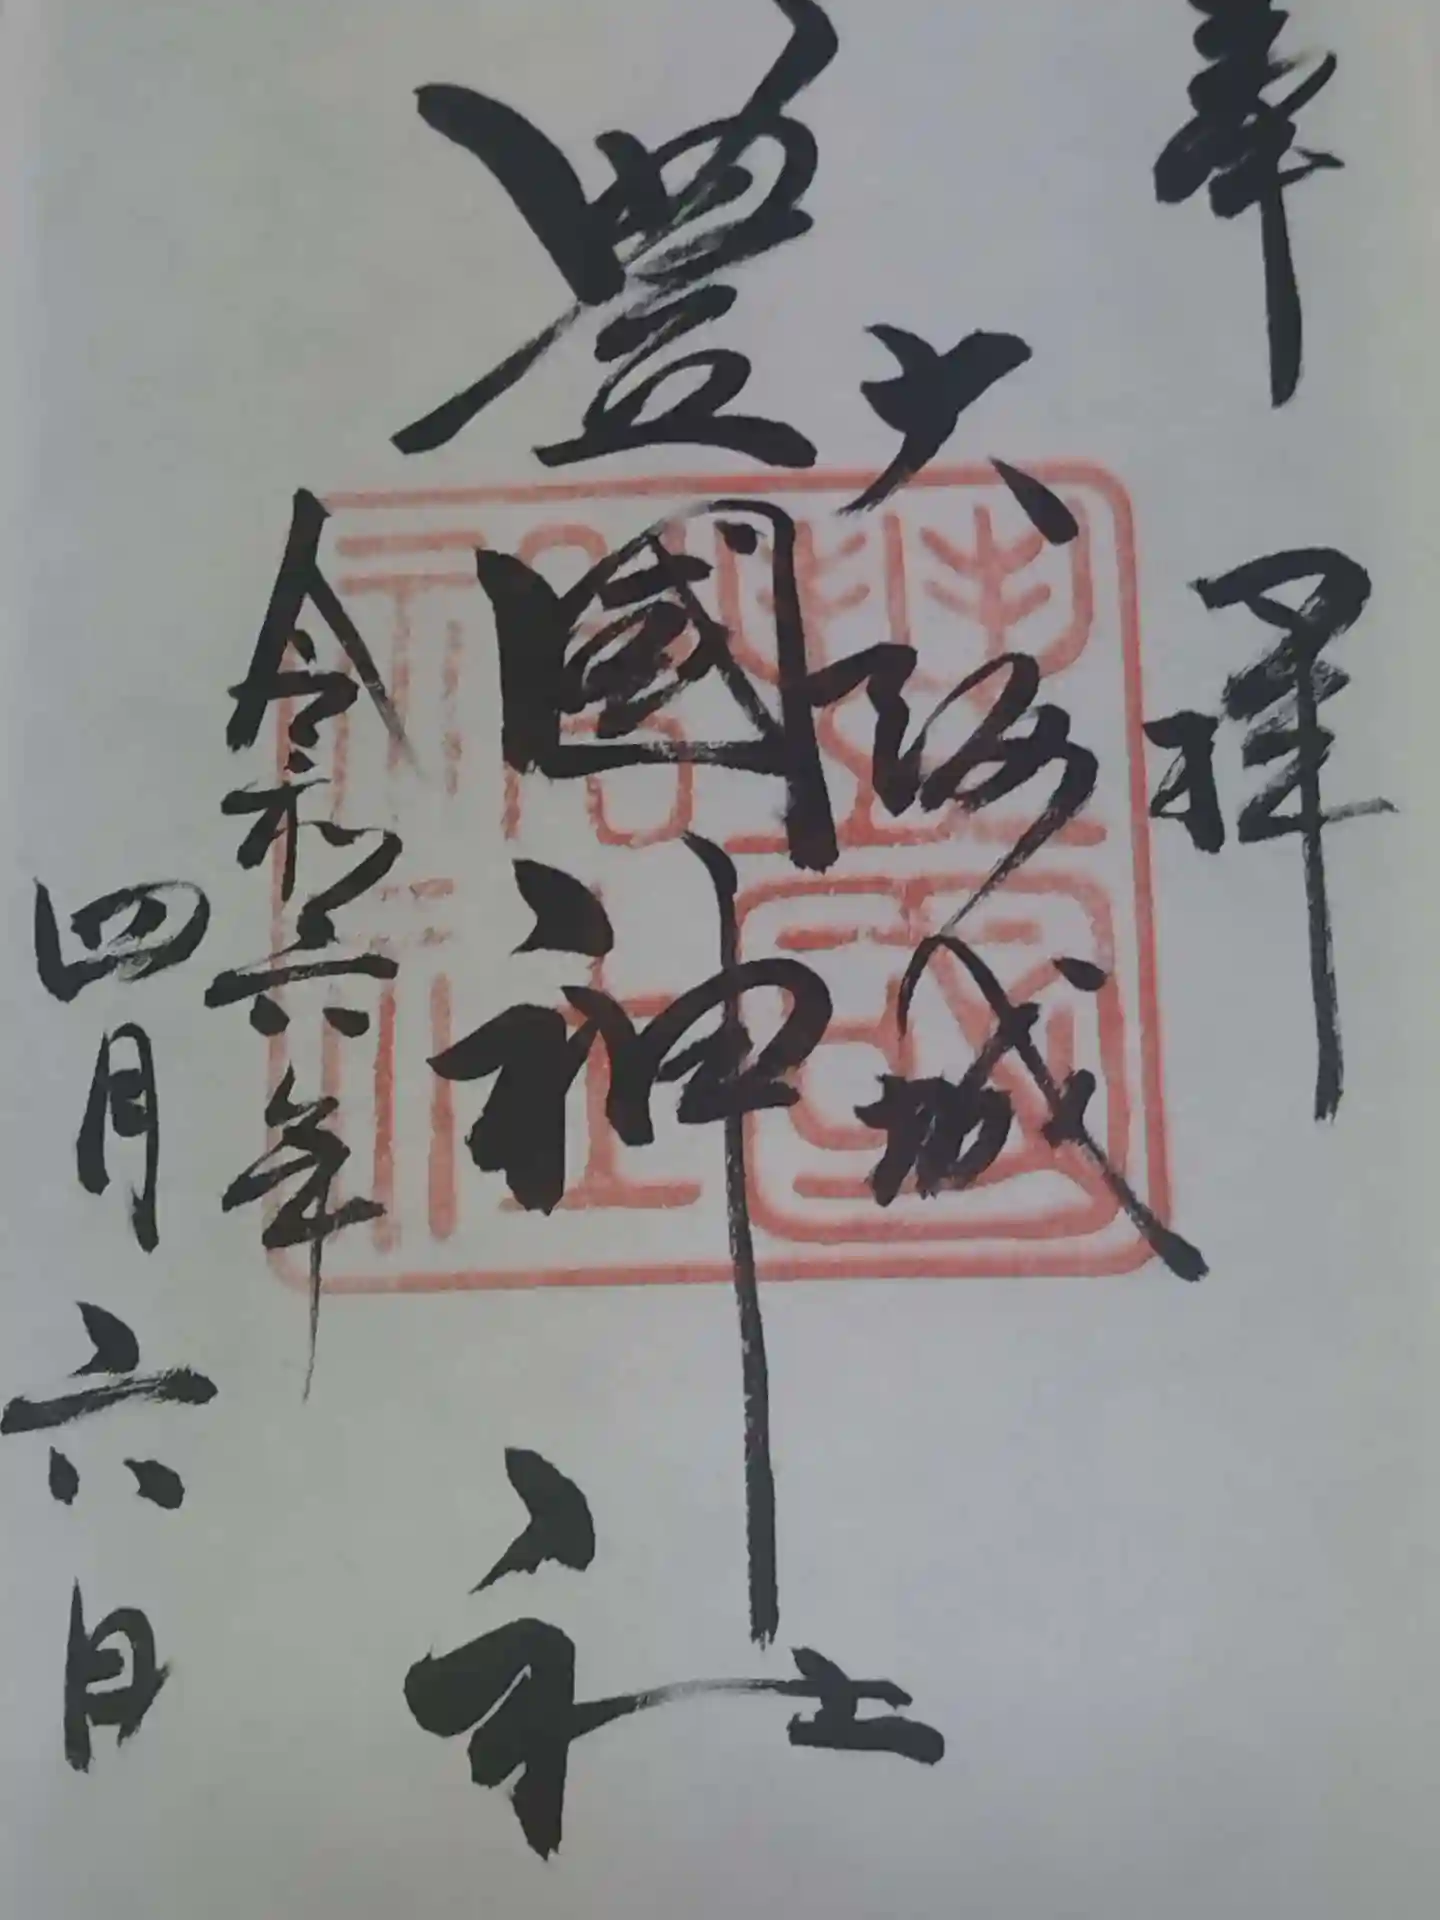 奉拝
大阪城
豊國神社
令和六年
四月六日
豊國神社